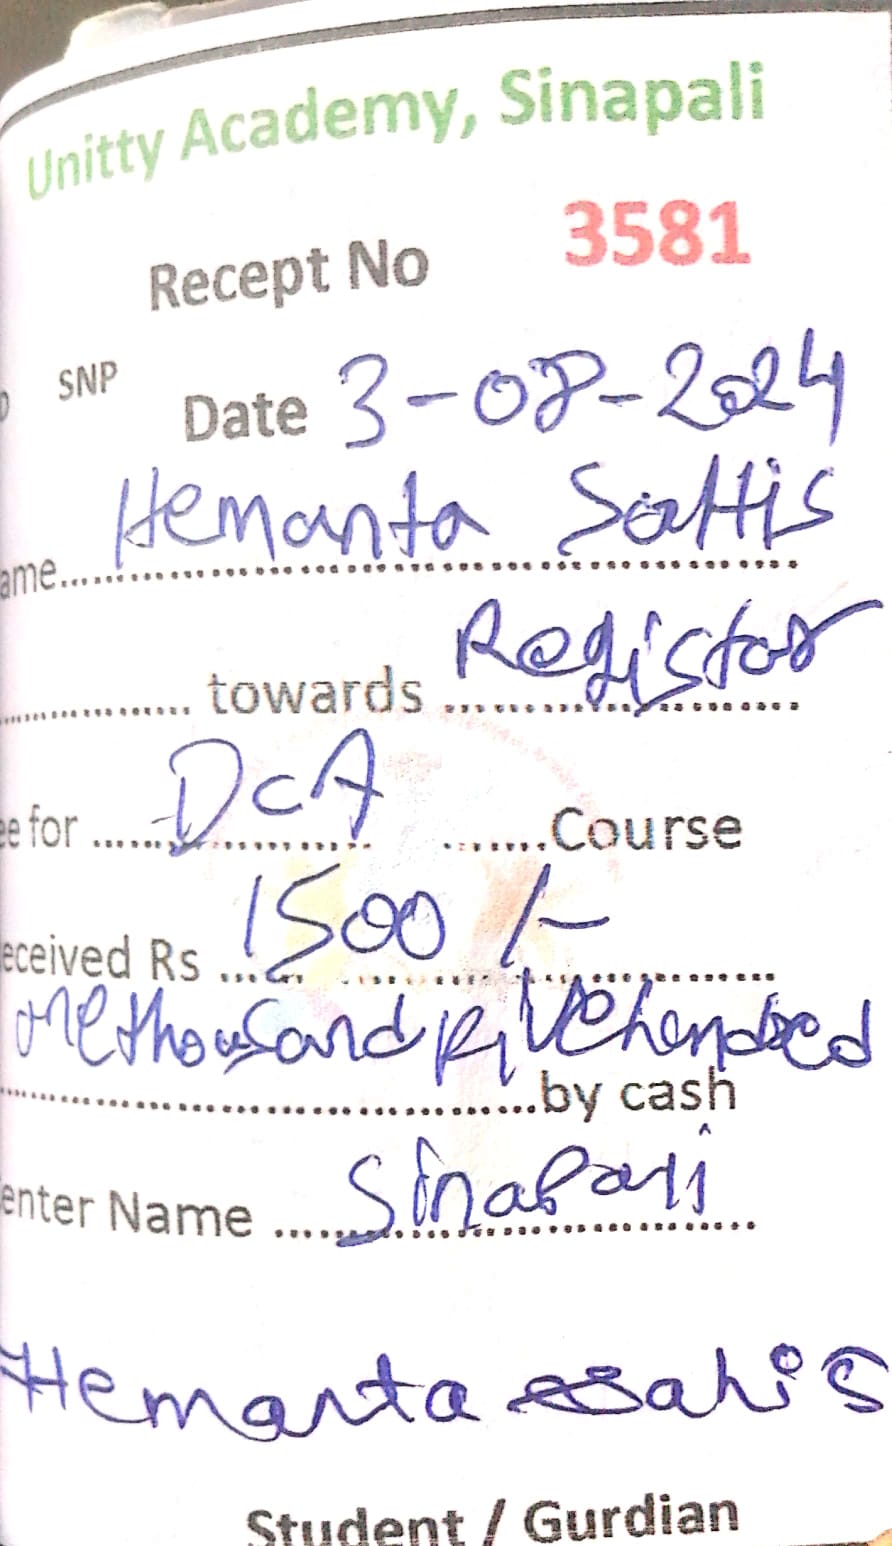 Unitty Academy, Sinapali
Recept No 3581
SNP
Date 3-08-2024
ame Hemanta
towards Registar
ee for DCA Course
eceived Rs 1500 /-
one thousand five hendred
by cash
enter Name Sinapali
Hemanta
Student / Gurdian